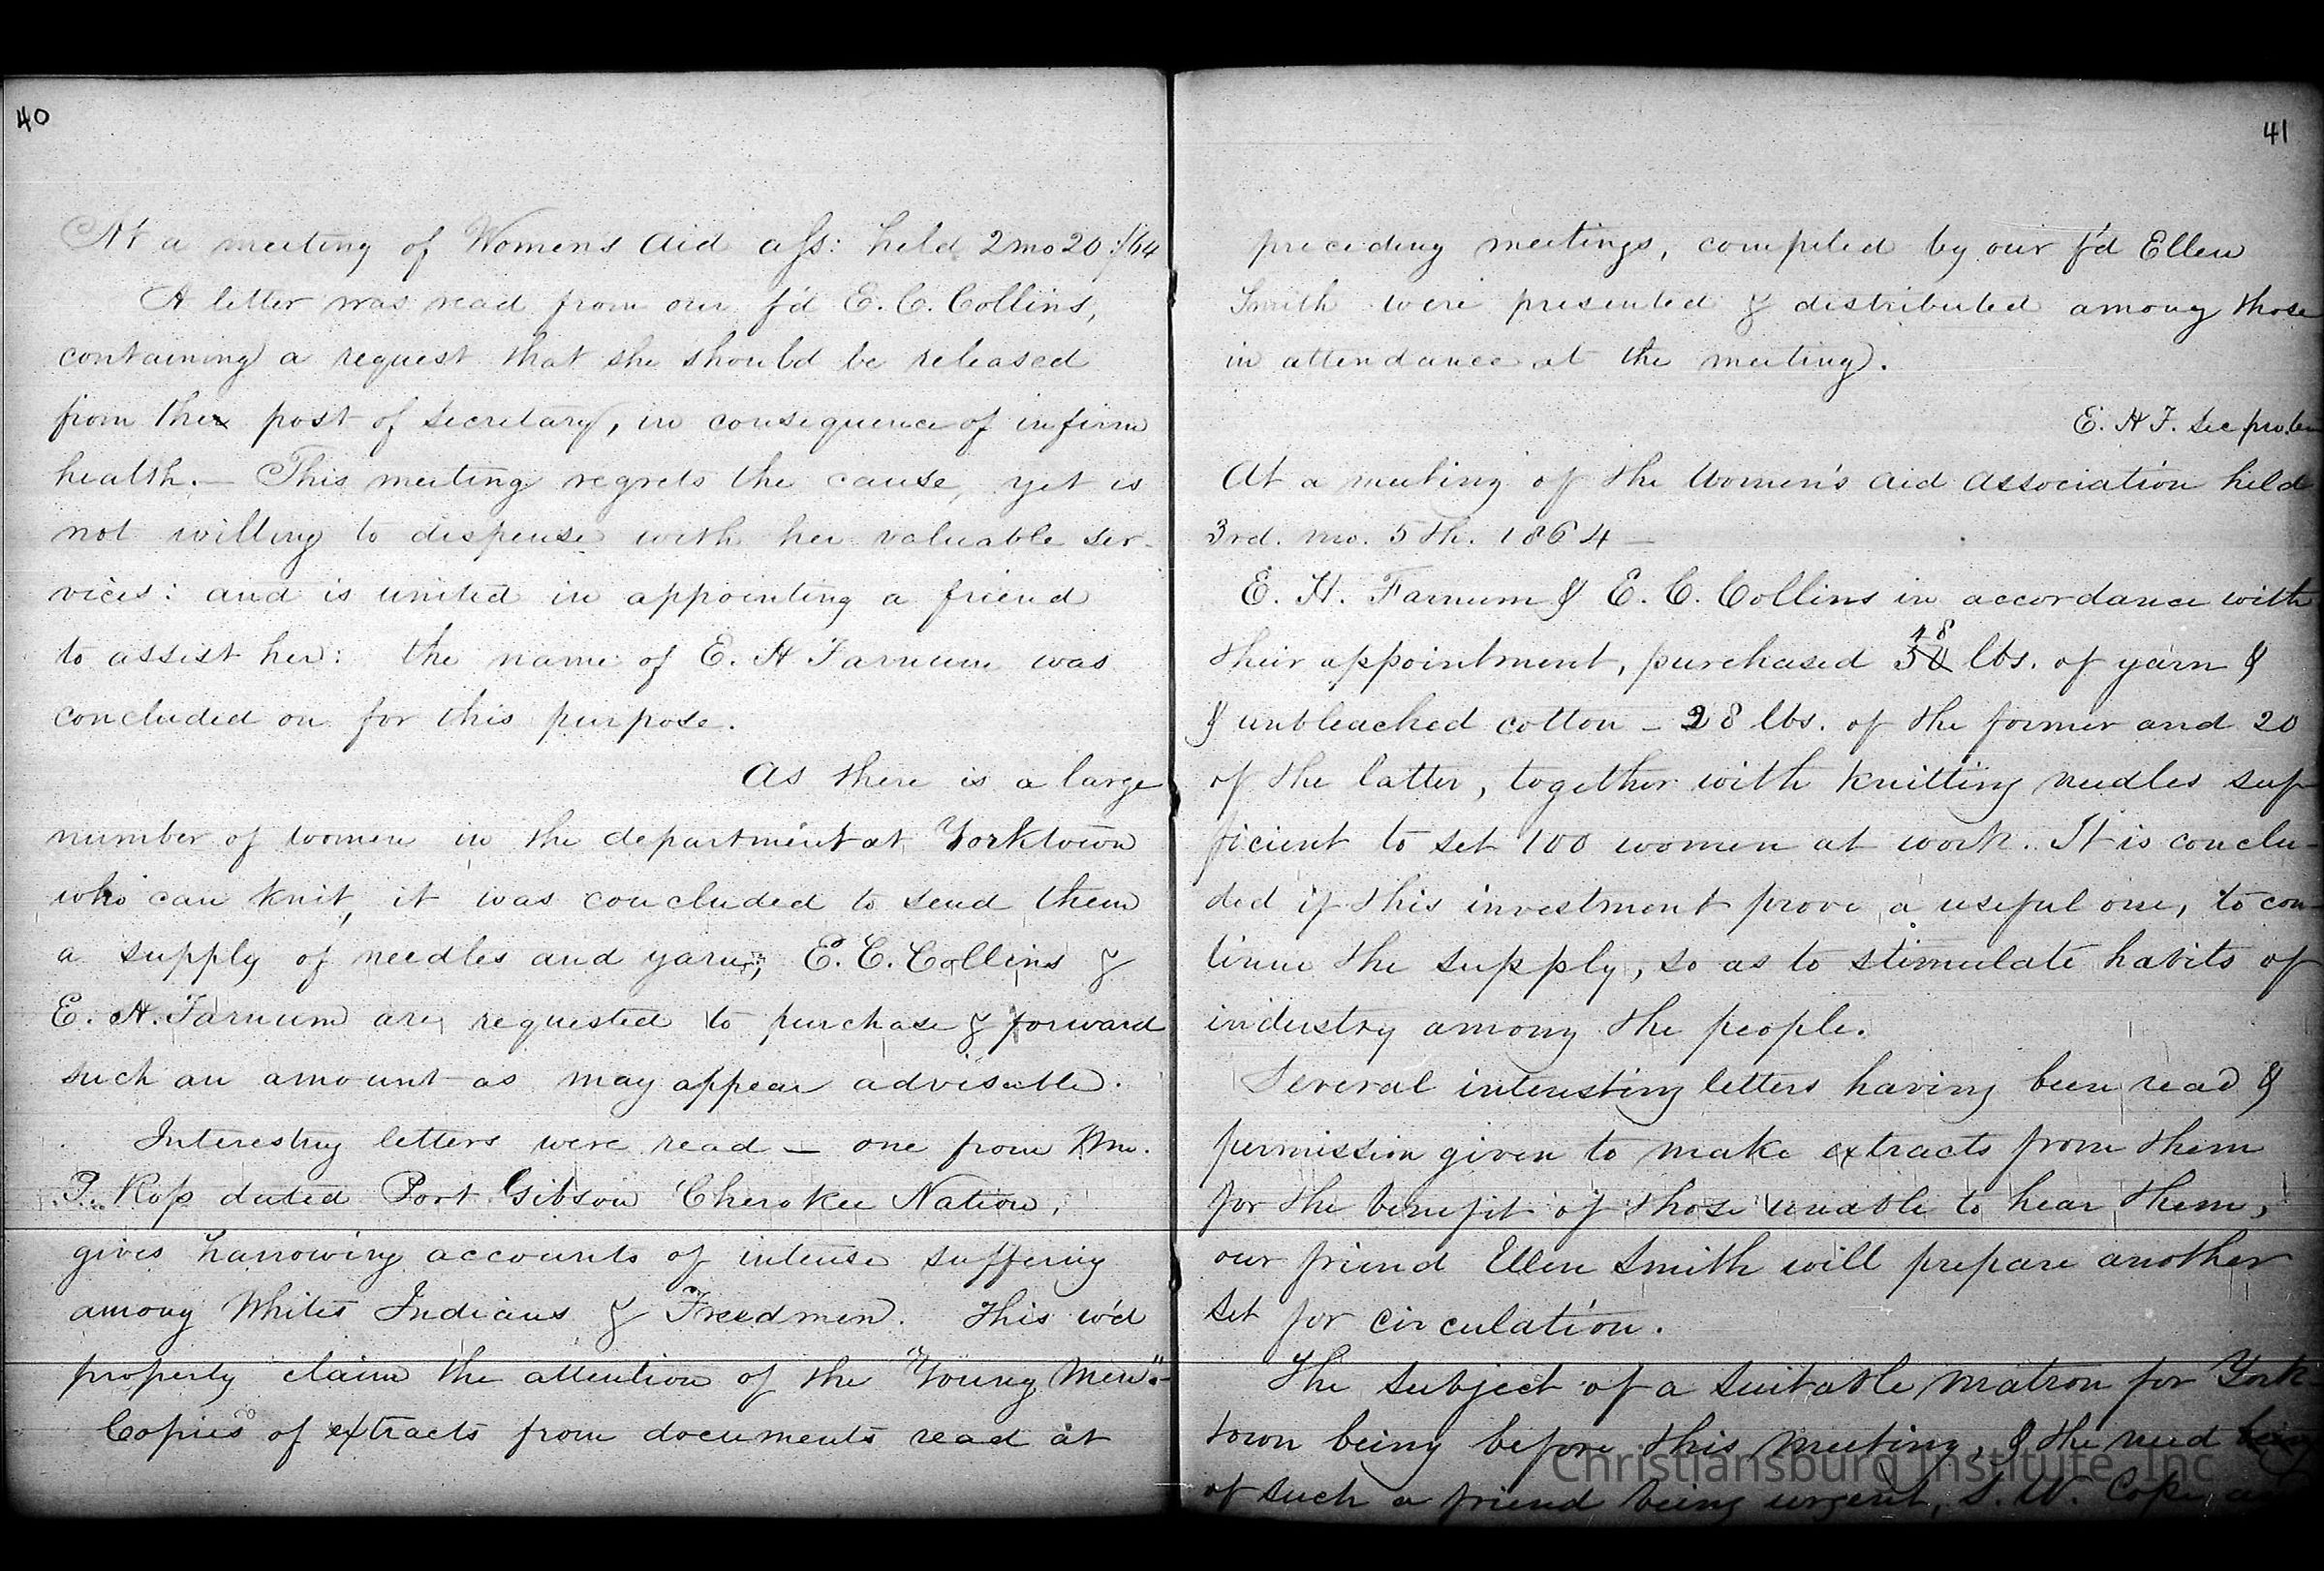 40
At a meeting of Womens Aid ass: held 2mo 20th/64
A letter was read from our f'd E. C. Collins,
containing a request that she should be released
from the post of secretary, in consequence of infirm
health. — This meeting regrets the cause, yet is
not willing to dispense with her valuable ser-
vices: and is united in appointing a friend
to assist her: the name of E. H Farnum was
concluded on for this purpose.
As there is a large
number of women in the department at Yorktown
who can knit, it was concluded to send them
a supply of needles and yarn; E. C. Collins &
E. H. Farnum are requested to purchase & forward
such an amount as may appear advisable.
Interesting letters were read — one from Wm.
P. Ross dated Fort Gibson Cherokee Nation,
gives harrowing accounts of intense suffering
among Whites Indians & Freedmen. This w'd
properly claim the attention of the "Young Men".
Copies of extracts from documents read at
41
preceding meetings, compiled by our f'd Ellen
Smith were presented & distributed among those
in attendance at the meeting.
E. H F. Sec pro. tem
At a meeting of the Women's Aid Association held
3rd. mo. 5th. 1864 —
E. H. Farnum & E. C. Collins in accordance with
48
their appointment, purchased 50 lbs. of yarn &
& unbleached cotton — 28 lbs. of the former and 20
of the latter, together with knitting needles suf-
ficient to set 100 women at work. It is conclu-
ded if this investment prove a useful one, to con-
tinue the supply, so as to stimulate habits of
industry among the people.
Several interesting letters having been read &
permission given to make extracts from them
for the benefit of those unable to hear them,
our friend Ellen Smith will prepare another
set for circulation.
The subject of a suitable matron for York
town being before this meeting, & the need being
of such a friend being urgent, S. W. Cope, and
Christiansburg Institute, Inc